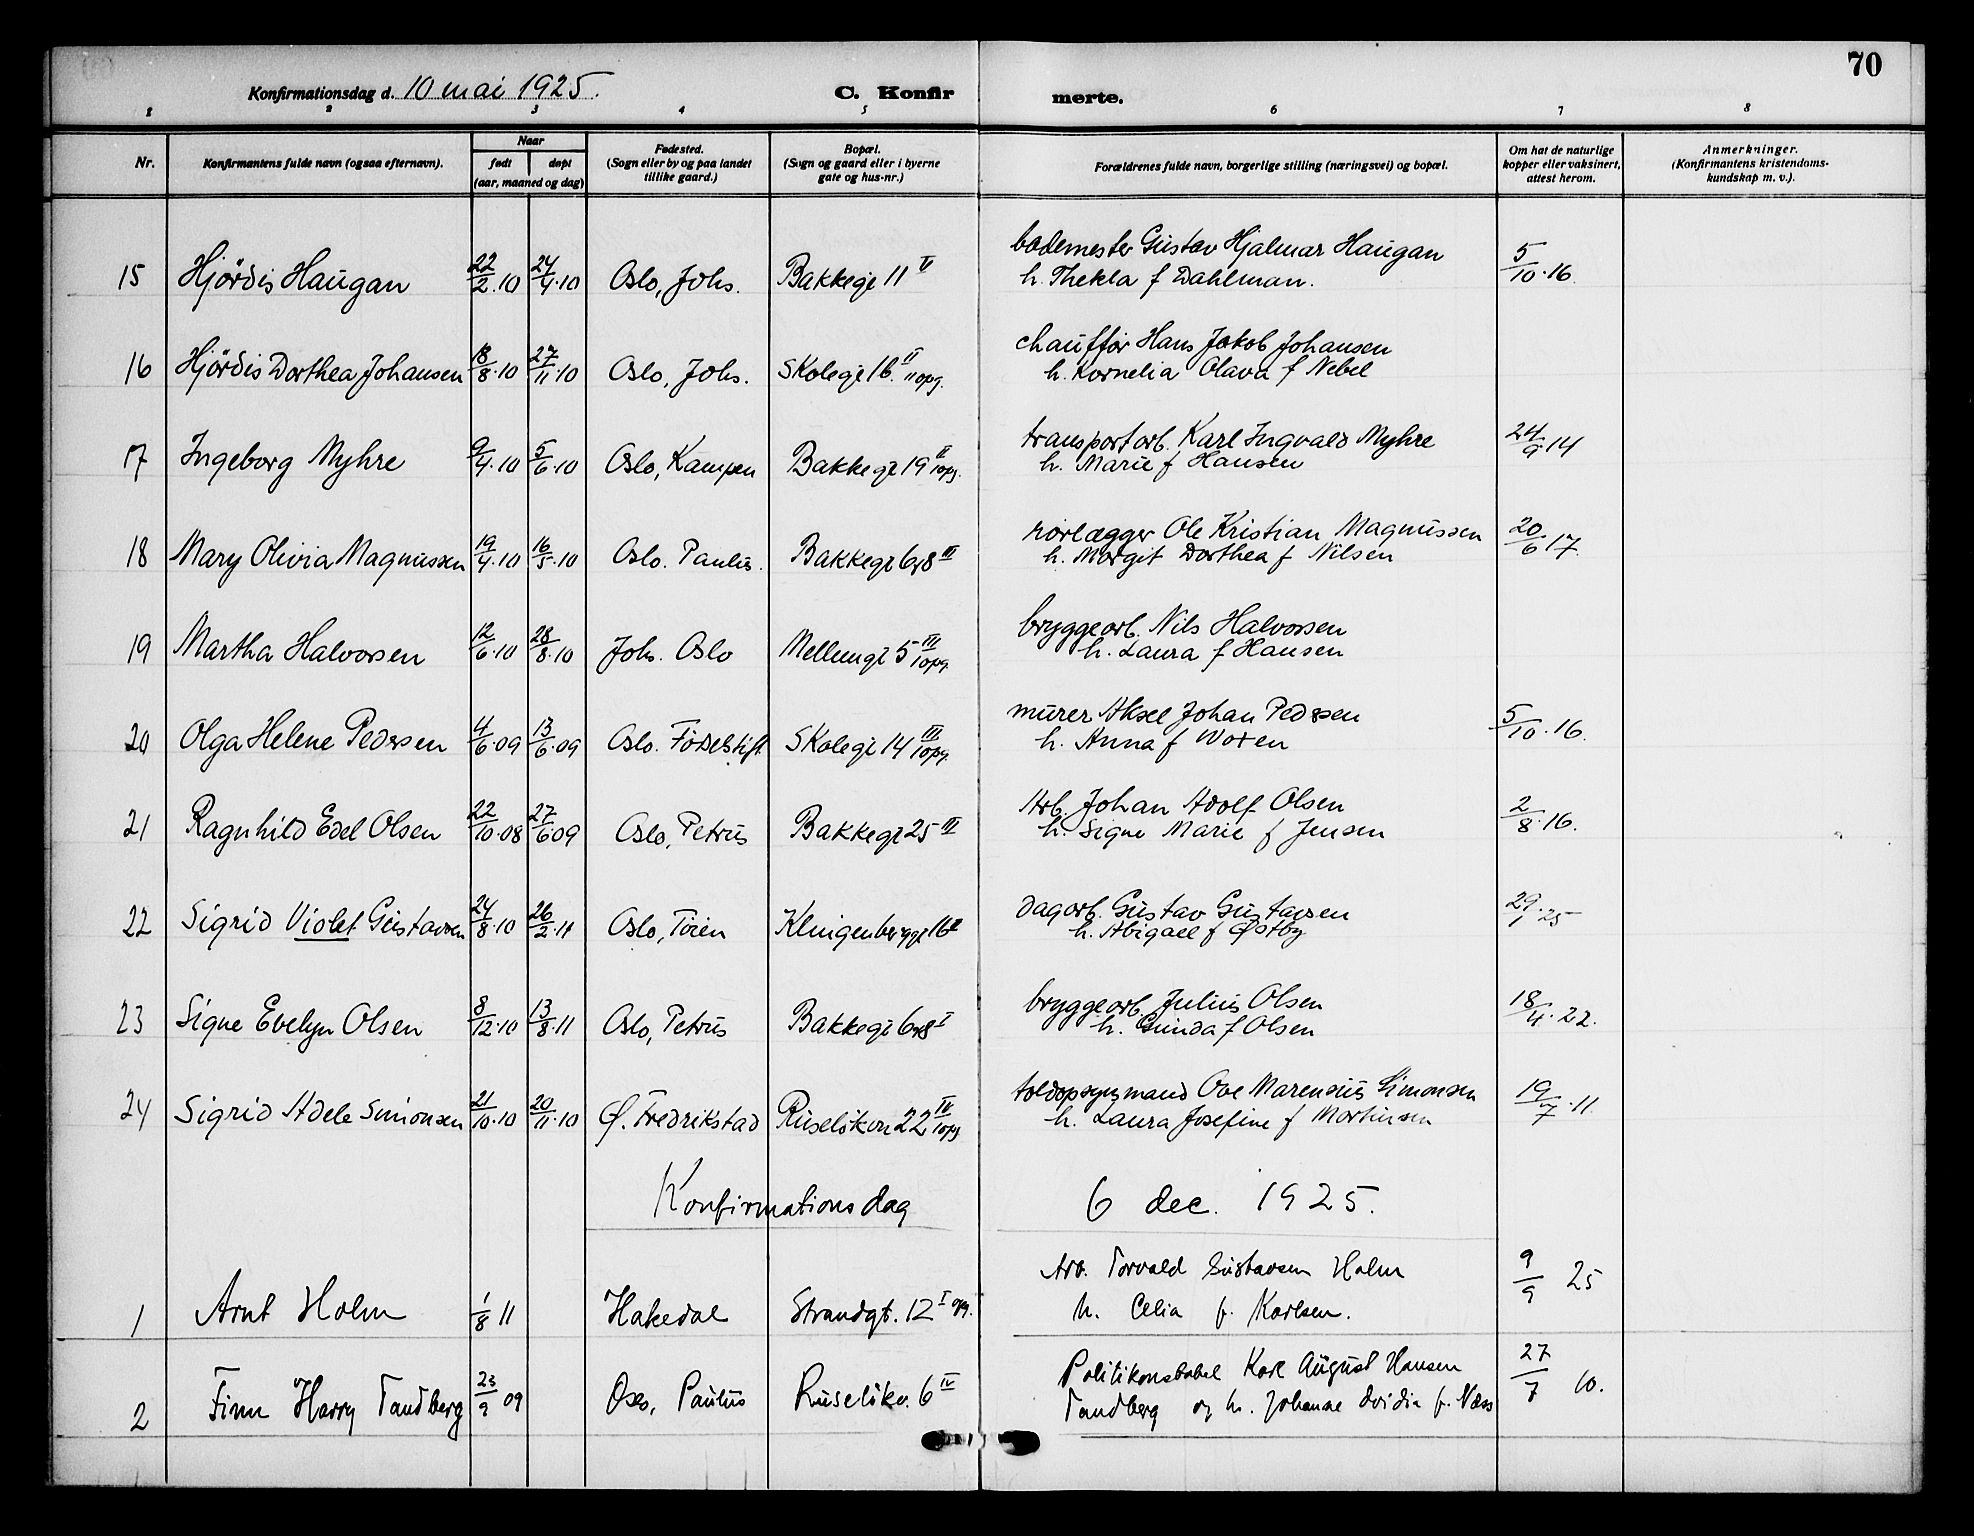 70
Konfirmationsdag d. 10 mai 1925.
C. Konfirmerte.
1 2 3 4 5 6 7 8
Nr.
Konfirmantens fulde navn (ogsaa efternavn).
Naar
født døpt
(aar, maaned og dag)
Fødested.
(Sogn eller by og paa landet
tillike gaard.)
Bopæl.
(Sogn og gaard eller i byerne
gate og hus-nr.)
Forældrenes fulde navn, borgerlige stilling (næringsvei) og bopæl.
Om hat de naturlige
kopper eller vaksinert,
attest herom.
Anmerkninger.
(Konfirmantens kristendoms-
kundskap m. v.).
15 Hjördis Haugan 22/2.10 24/4.10 Oslo, Johs. Bakkegt 11 II bademester Gustav Hjalmar Haugan
h. Thekla f Dahlman. 5/10.16.
16 Hjördis Dorthea Johansen 18/8.10 27/11.10 Oslo, Johs. Skolegt 16. II opg. chauffør Hans Jakob Johansen
h. Kornelia Olava f Nebel
17 Ingeborg Myhre 9/4.10 5/6.10 Oslo, Kampen Bakkegt 19 II opg. transportarb. Karl Ingvald Myhre
h. Marie f Hansen 24/9.14
18 Mary Olivia Magnussen 19/4.10 16/5.10 Oslo. Paulus. Bakkegt 6&8 III rörlægger Ole Kristian Magnussen
h. Margit Dorthea f Nilsen 20/6.17.
19 Martha Halvorsen 12/6.10 28/8.10 Johs. Oslo Mellemgt 5 III opg. bryggearb. Nils Halvorsen
h. Laura f Hansen
20 Olga Helene Pedersen 4/6.09 13/6.09 Oslo. Födselstift. Skolegt 14 III opg. murer Aksel Johan Pedersen
h. Anna f Woxen 5/10.16.
21 Ragnhild Edel Olsen 22/10.08 27/6.09 Oslo, Petrus Bakkegt 25 III Arb. Johan Adolf Olsen
h. Signe Marie f Jensen 2/8.16.
22 Sigrid Violet Gustavsen 24/8.10 26/2.11 Oslo, Töien Klingenberggt 16 II dagarb. Gustav Gustavsen
h. Abigael f Østby 29/1.25
23 Signe Evelyn Olsen 8/12.10 13/8.11 Oslo, Petrus Bakkegt 6&8 I bryggearb. Julius Olsen
h. Gunda f Olsen 18/4.22.
24 Sigrid Adele Simonsen 21/10.10 20/11.10 Ø. Fredrikstad Ruselökvn 22 IV opg toldopsynsmand Ove Marensius Simonsen
h. Laura Josefine f Martinsen 19/7.11.
Konfirmationsdag 6 dec. 1925.
1 Arnt Holm 1/8 11 Hakedal Strandgt. 12 I og. Arb. Torvald Gustavsen Holm
h. Celia f. Karlsen. 9/9 25
2 Finn Harry Tandberg 23/9 09 Oslo, Paulus Ruselökv. 6 IV Politikonstabel Karl August Hansen
Tandberg og h. Johanne f. Næss 27/7 10.